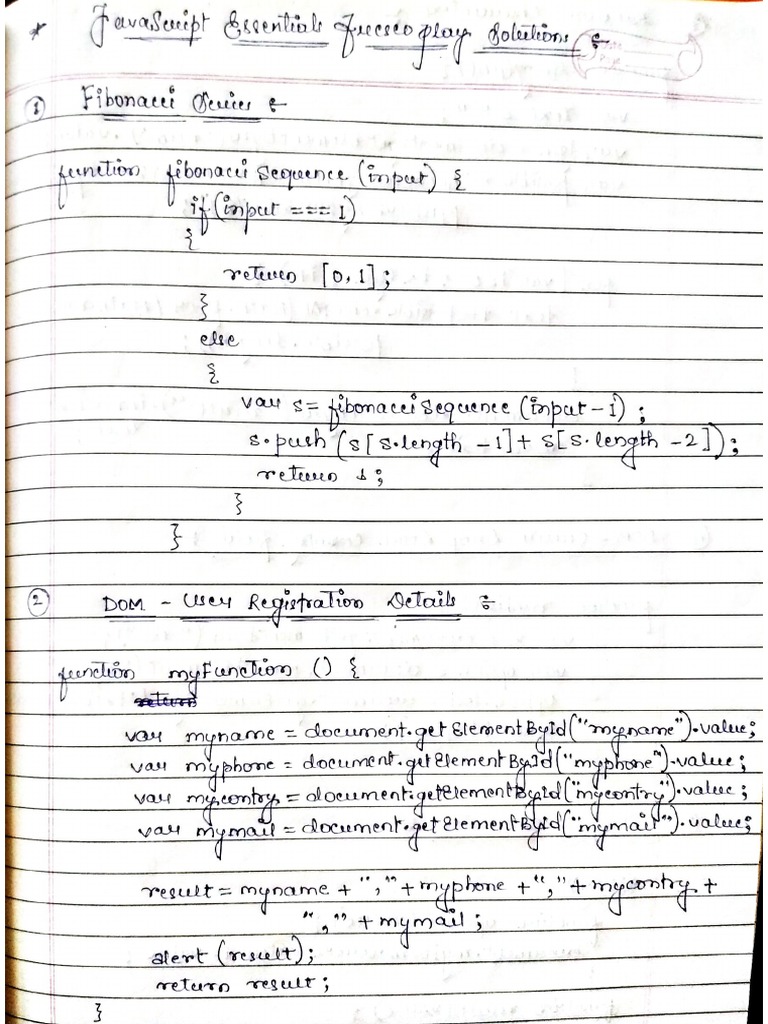 * JavaScript Essentials Frescoplay Solutions :-
① Fibonacci Series :-
function fibonacciSequence (input) {
if (input === 1)
{
return [0,1];
}
else
{
var s = fibonacciSequence (input-1);
s.push (s[s.length -1] + s[s.length -2]);
return s;
}
}
② DOM - User Registration Details :-
function myFunction () {
return
var myname = document.getElementById("myname").value;
var myphone = document.getElementById("myphone").value;
var mycontry = document.getElementById("mycontry").value;
var mymail = document.getElementById("mymail").value;
result = myname + "," + myphone + "," + mycontry +
"," + mymail;
alert (result);
return result;
}